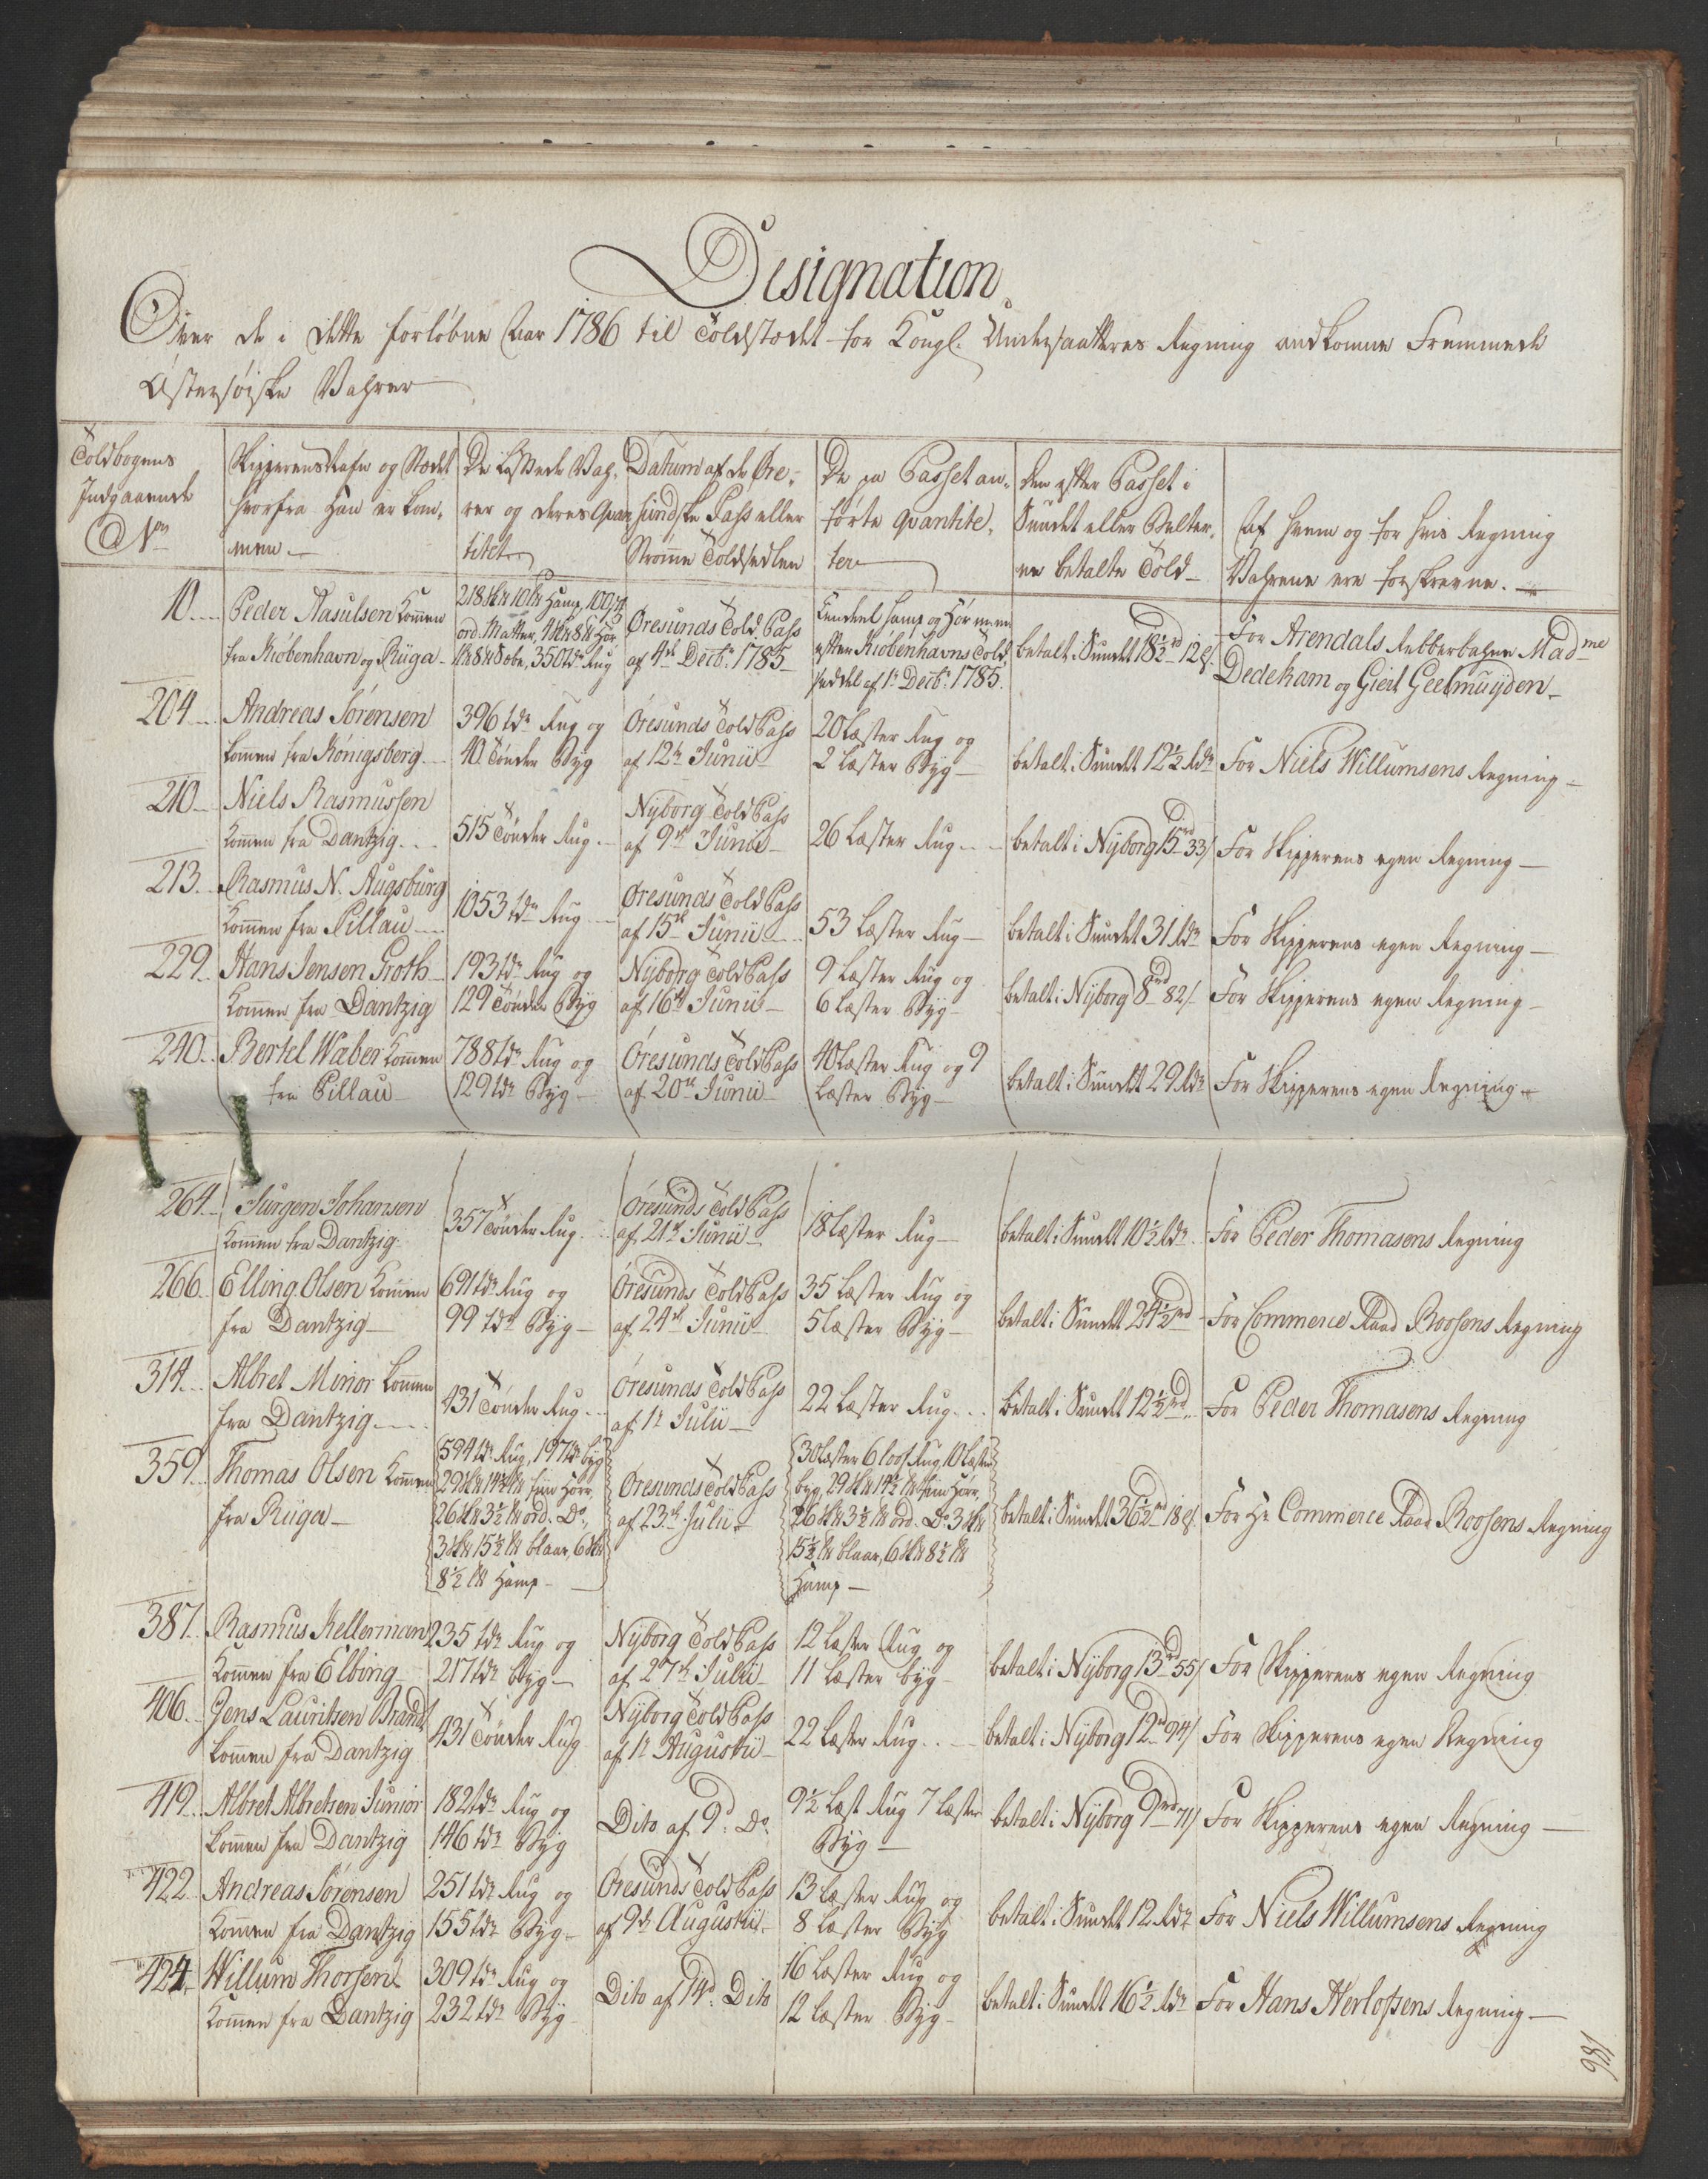 Designation
Over de i dette forløbne Aar 1786 til Toldstædet for Kongl. Undersaatteres Regning andkomne Fremmede
Østersøiske Vahrer
Toldbogens
Indgaaende
No
Skipperens Nafn og Stædet
hvorfra han er kom-
men
De lossede Vah-
rer og deres Quan-
titet
Datum af de Øre-
sundske Pass eller
Strømme Toldsedlen
De paa Passet an-
førte quantite-
ter
Den efter Passet i
Sundet eller Belter-
ne betalte Told
Af hvem og for hvis Regning
Vahrene ere forskrevne.
10 Peder Aasulsen Kommen
fra Kiøbenhavn og Riiga
218 10 Hamp, 100
ord. Matter, 4 8 Hør
8 Sæbe, 350 tdr Rug
Øresunds Told Pass
af 4de Decbr 1785
Hamp og Hør
efter Kiøbenhavns Told
seddel af 1 Decbr 1785.
betalt i Sundet 18½ rd 12 s.
For Arendals Rebberbahne Madme
Dedekam og Giert Geelmuijden
204 Andreas Sørensen
kommen fra Kønigsberg
396 tdr Rug og
40 Tønder Byg
Øresunds Told Pass
af 12te Junii
20 Læster Rug og
2 Læster Byg
betalt i Sundet 12½ Rdr
For Niels Willumsens Regning
210 Niels Rasmussen
kommen fra Dantzig
515 Tønder Rug
Nyborg Told Pass
af 9de Junii
26 Læster Rug
betalt i Nyborg 15 rd 33 s
For Skipperens egen Regning
213 Rasmus N. Augsburg
Kommen fra Pillau
1053 tdr Rug
Øresunds Told Pass
af 15de Junii
53 Læster Rug
betalt i Sundet 31 Rdr
For Skipperens egen Regning
229 Hans Jensen Groth
Kommen fra Dantzig
193 tdr Rug og
129 Tønder Byg
Nyborg Told Pass
af 16de Junii
9 Læster Rug og
6 Læster Byg
betalt i Nyborg 8 rd 82 s
For Skipperens egen Regning
240 Bertel Wæber kommen
fra Pillau
788 tdr Rug og
129 tdr Byg
Øresunds Told Pass
af 20de Junii
40 Læster Rug og 9
Læster Byg
betalt i Sundet 29 Rdr
For Skipperens egen Regning
264 Jurgen Johansen
kommen fra Dantzig
357 Tønder Rug
Øresunds Told Pass
af 21de Junii
18 Læster Rug
betalt i Sundet 10½ Rdr
For Peder Thomasens Regning
266 Elling Olsen Kommen
fra Dantzig
691 tdr Rug og
99 tdr Byg
Øresunds Told Pass
af 24de Junii
35 Læster Rug og
5 Læster Byg
betalt i Sundet 24½ rd
For Commerce Raad Roosens Regning
314 Albret Minor kommen
fra Dantzig
431 Tønder Rug
Øresunds Told Pass
af 1te Julii
22 Læster Rug
betalt i Sundet 12½ rd
For Peder Thomasens Regning
359 Thomas Olsen Kommen
fra Riiga
594 tdr Rug, 197 tdr byg
29 14½ fiin Hørr,
26 3½ ord. Do,
3 15½ blaar, 6
8½ Hamp
Øresunds Told Pass
af 23de Julii
30 Læster 6 loof Rug, 10 Læster
byg, 29 14½ fiin Hørr,
26 3½ ord. Do 3
15½ blaar, 6 8½
Hamp
betalt i Sundet 36½ rd 18 s.
For Hr Commerce Raad Roosens Regning
387 Rasmus Kellerman
Kommen fra Elbing
235 tdr Rug og
217 tdr byg
Nyborg Told Pass
af 27de Julii
12 Læster Rug og
11 Læster byg
betalt i Nyborg 13 rd 55 s
For Skipperens egen Regning
406 Jens Lauritsen Brandt
kommen fra Dantzig
431 Tønder Rug
Nyborg Told Pass
af 1te Augustii
22 Læster Rug
betalt i Nyborg 12 rd 94 s
For Skipperens egen Regning
419 Albret Albretsen Junior
kommen fra Dantzig
182 tdr Rug og
146 tdr Byg
Dito af 9d. Do.
9½ Læst Rug 7 Læster
Byg
betalt i Nyborg 9 rd 71 s
For Skipperens egen Regning
422 Andreas Sørensen
kommen fra Dantzig
251 tdr Rug og
155 tdr Byg
Øresunds Told Pass
af 9de Augustii
13 Læster Rug og
8 Læster Byg
betalt i Sundet 12 Rdr
For Niels Willumsens Regning
424 Willum Thorsen
Kommen fra Dantzig
309 tdr Rug og
232 tdr Byg
Dito af 14d. Dito
16 Læster Rug og
12 Læster Byg
betalt i Sundet 16½ Rdr
For Hans Herlofsens Regning